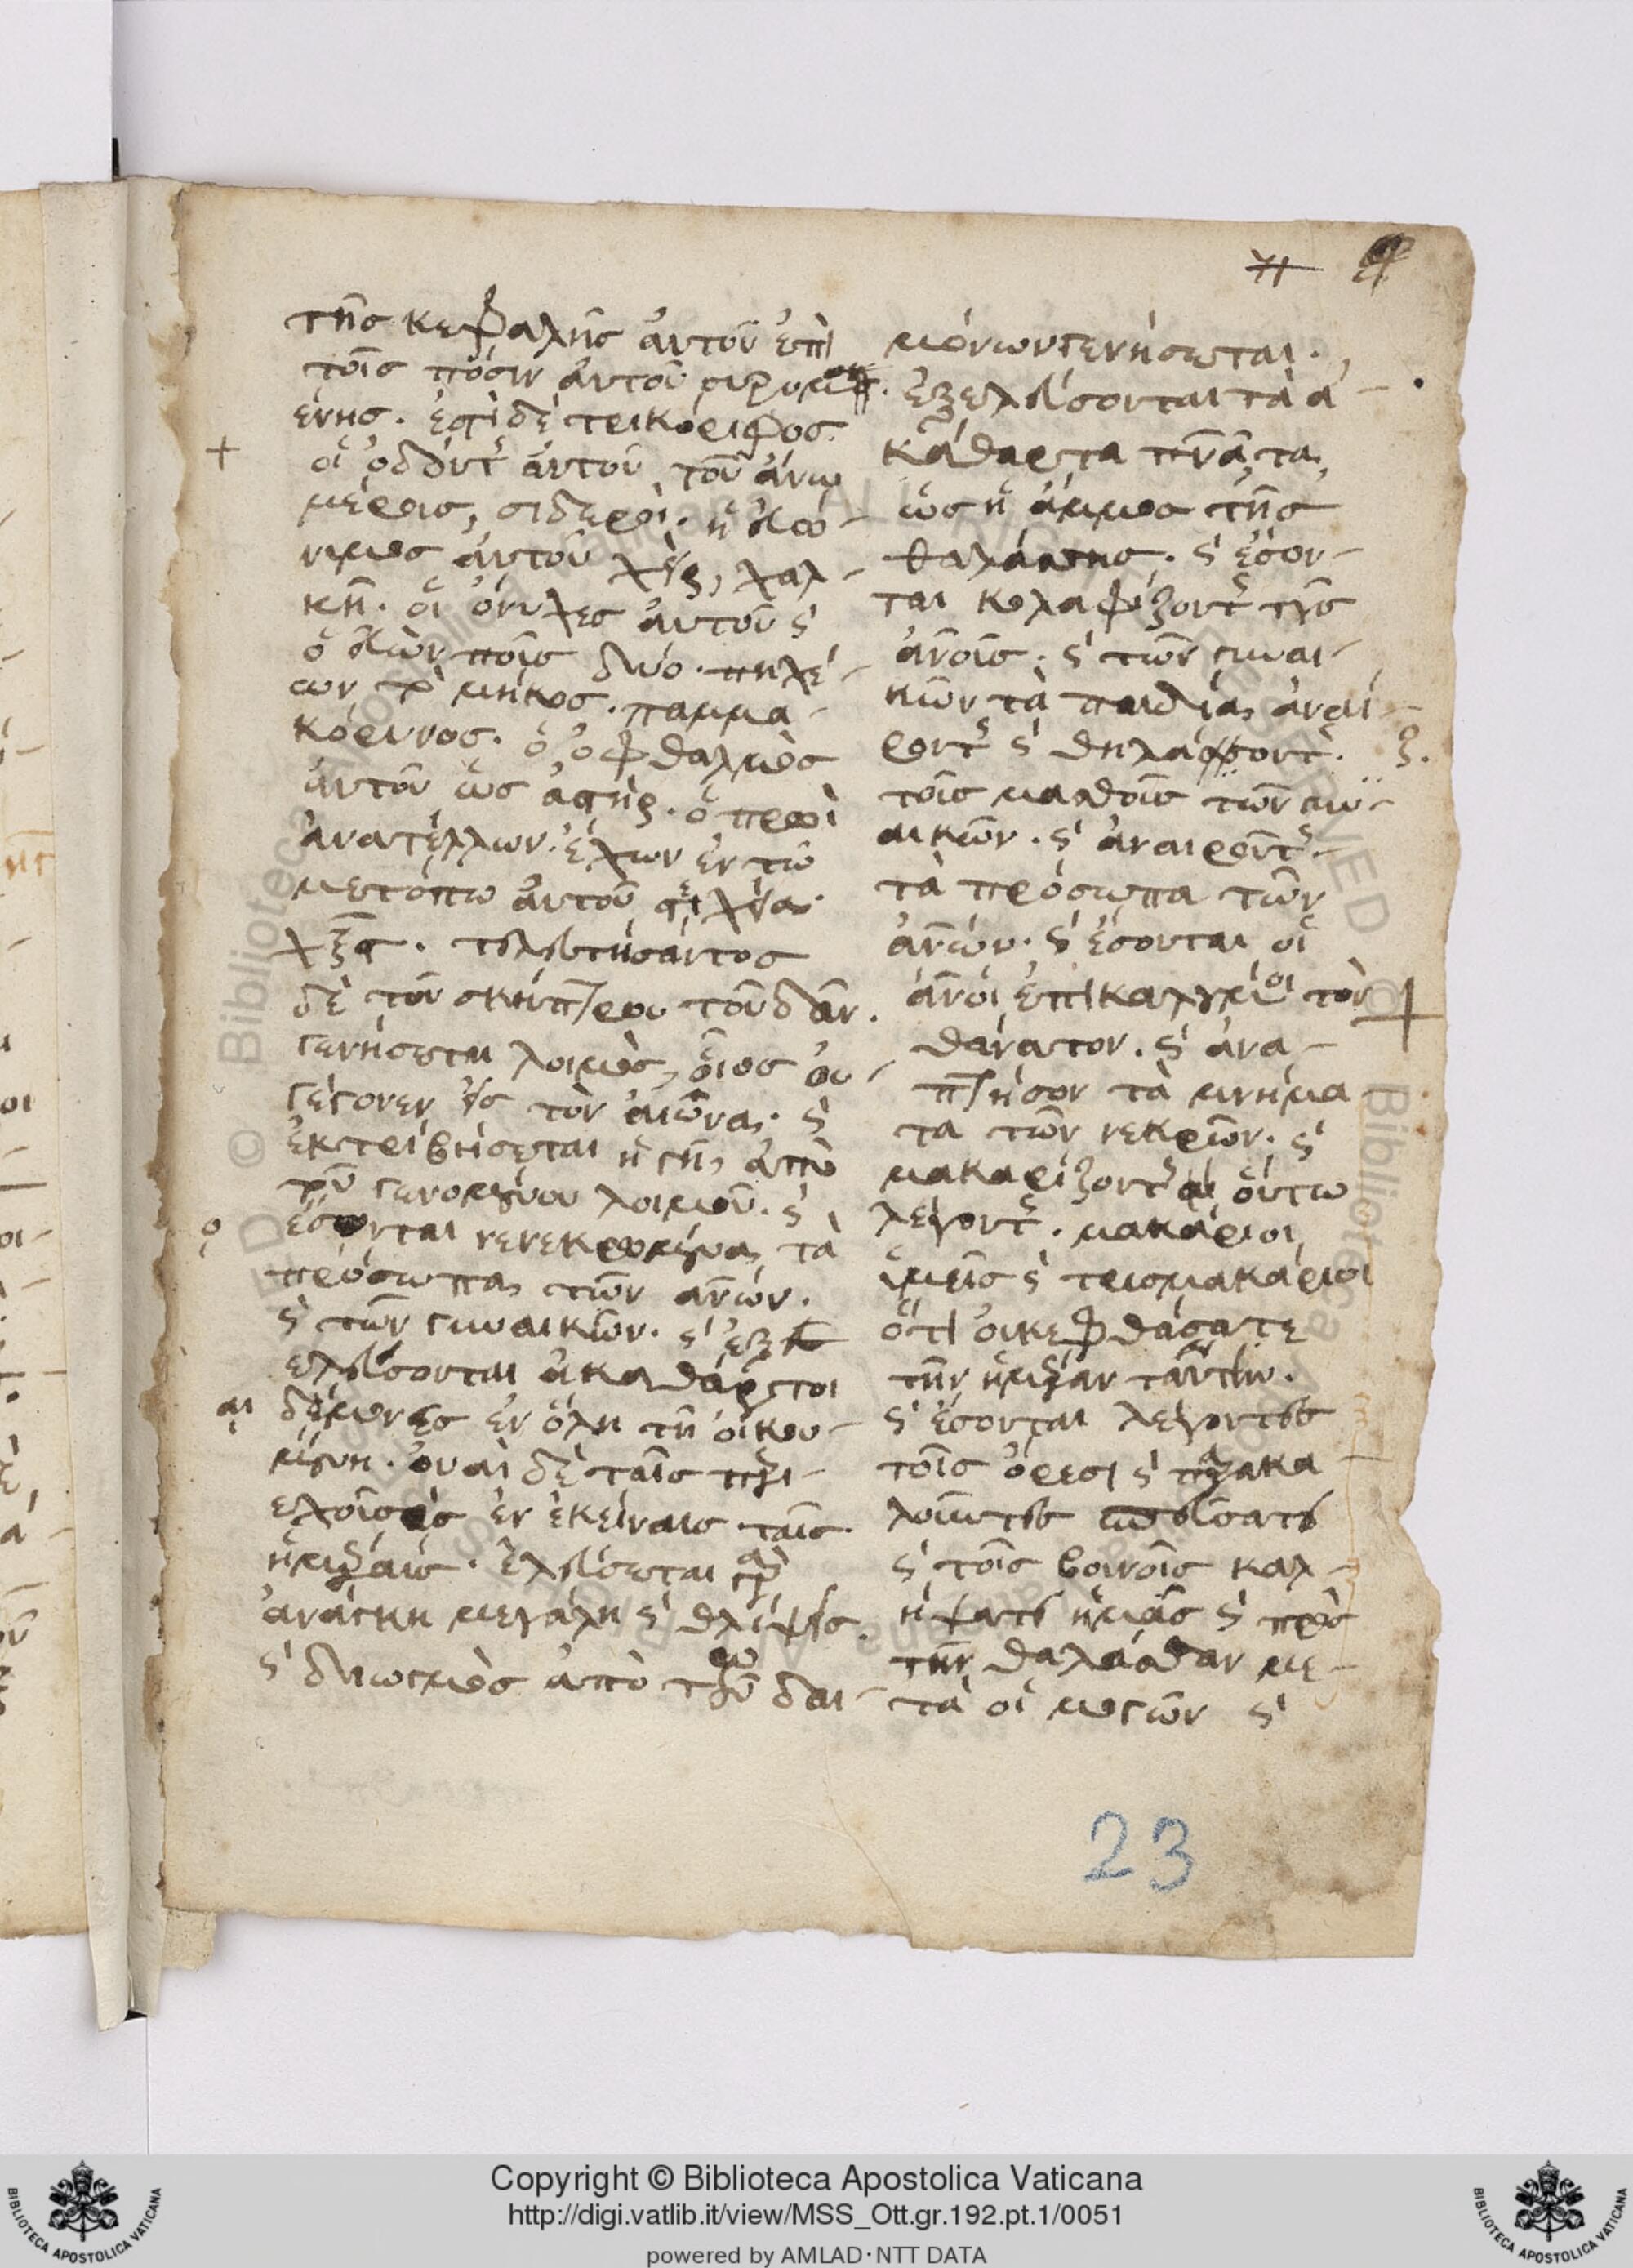 71
τῆς κεφαλῆς ἀυτοῦ ἐπὶ
τοῖς πόσιν ἀυτοῦ
ένης. ἐστὶ δὲ τρικόριφος.
οἱ ὀδόντ ἀυτοῦ τοῦ ἄνω
μέρους, σιδεροί. ἡ
ἀυτοῦ χαλ-
κῆ. οἱ ὄνυχες ἀυτοῦ ϛ
δύο. πηχέ-
ων τὸ μῆκος. παμμα-
κόρυνος. ὁ ὀφθαλμὸς
ἀυτοῦ ὡς ἀστὴρ. ὁ προῒ
ἀνατέλλων. ἔχων ἐν τῶ
μετόπω ἀυτοῦ
χξϛ. τελευτήσαντος
δὲ τοῦ σκήπτρου τοῦ δὰν.
γενήσεται λοιμὸς, οἷος ὀυ
γέγονεν εἰς τὸν αἰῶνα. ϛ
ἐκτριβήσεται ἡ γῆ, ἀπὸ
τοῦ γενομένου λοιμοῦ. ϛ
ἔσονται νενεκρομένα, τὰ
πρόσωπα, τῶν ἀνῶν.
ϛ τῶν γυναικῶν. ϛ ἐξ
ελεύσονται ἀκαθάρτοι
δέμονες ἐν ὅλη τῆ οἰκου-
μένη. ὀυαὶ δὲ ταῖς
εχοῖσες ἐν ἐκείναις ταῖς
ἡμέραις. ἐλεύσεται γὰρ
ἀνάγκη μεγάλη ϛ θλίψις.
ϛ διωγμὸς ἀπὸ τῶν δαι-
μόνων γενήσεται.
ἐξελεύσονται τὰ ἀ-
κάθαρτα πνᾶτα,
ὡς ἡ ἄμμος τῆς
θαλάσσης. ϛ ἔσον-
ται κολαφίζοντ τοὺς
ἀνοῖς. ϛ τῶν γυναι-
κῶν τὰ παιδία, ἀναί-
ροντ ϛ θηλάζοντ.
τοῖς μασθοῖς τῶν γυν-
αικῶν. ϛ ἀναιροῦντ
τὰ πρόσωπα τῶν
ἀνῶν. ϛ ἔσονται οἱ
ἀνοι ἐπικαλούμενοι τὸν
θάνατον. ϛ ἀνα-
πτήσον τὰ μνήμα
τα τῶν νεκρῶν. ϛ
μακαρίζοντ οὕτω
λέγοντ. μακάριοι,
ἡμεῖς ϛ τρισμακάριοι
ὅτι οὐκ ἐφθάσατε
τὴν ἡμέραν ταύτην.
ϛ ἔσονται λέγοντες
τοῖς ὄρεσι ϛ παρακα
λοῦντες πεύσατε
ϛ τοῖς βουνοῖς καλ-
ήψατε ἡμᾶς ϛ πρὸς
τὴν θαλάσσαν με-
τὰ οἱ μογῶν ϛ
23
Copyright © Biblioteca Apostolica Vaticana
http://digi.vatlib.it/view/MSS_Ott.gr.192.pt.1/0051
powered by AMLAD·NTT DATA
BIBLIOTECA APOSTOLICA VATICANA
BIBLIOTECA APOSTOLICA VATICANA